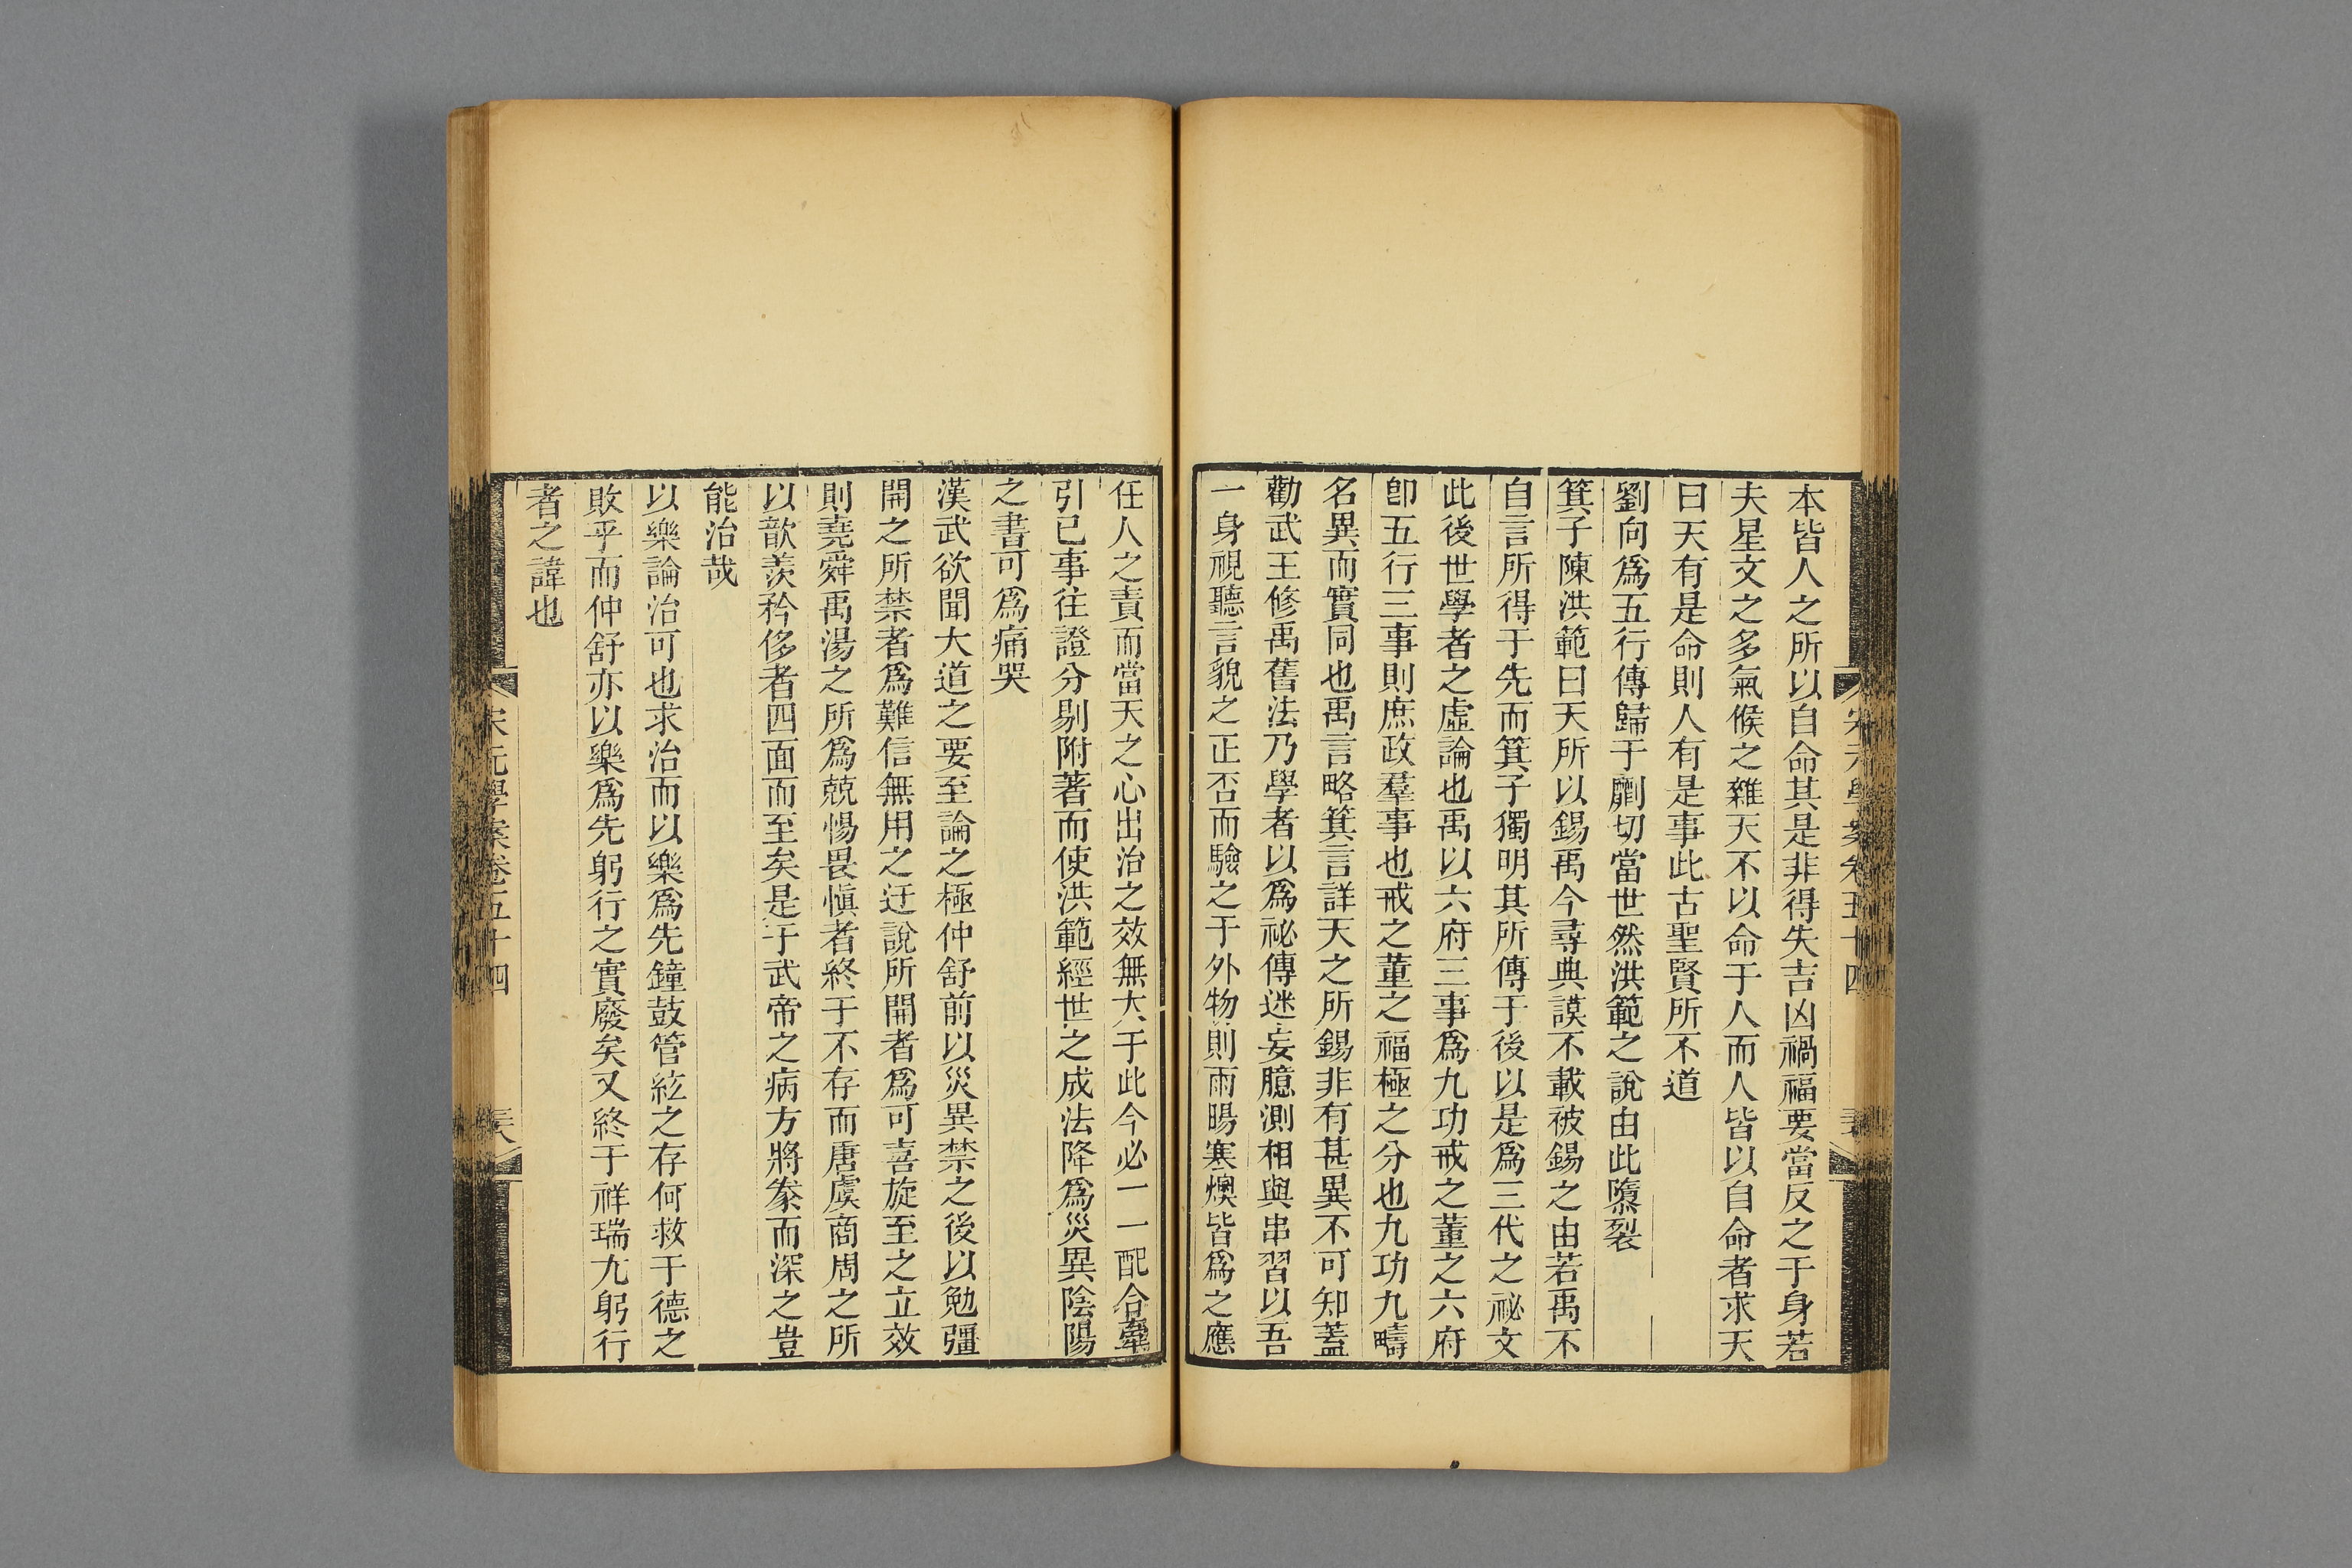 本皆人之所以自命其是非得失吉凶禍福要當反之于身若
夫星文之多氣候之雜天不以命于人而人皆以自命者求天
曰天有是命則人有是事此古聖賢所不道
劉向爲五行傳歸于劘切當世然洪範之說由此隳裂
箕子陳洪範曰天所以錫禹今尋典謨不載被錫之由若禹不
自言所得于先而箕子獨明其所傳于後以是爲三代之祕文
此後世學者之虛論也禹以六府三事爲九功戒之董之六府
卽五行三事則庶政羣事也戒之董之福極之分也九功九疇
名異而實同也禹言略箕言詳天之所錫非有甚異不可知蓋
勸武王修禹舊法乃學者以爲祕傳迷妄臆測相與串習以吾
一身視聽言貌之正否而驗之于外物則雨暘寒燠皆爲之應
任人之責而當天之心出治之效無大于此今必一一配合牽
引已事往證分剔附著而使洪範經世之成法降爲災異陰陽
之書可爲痛哭
漢武欲聞大道之要至論之極仲舒前以災異禁之後以勉彊
開之所禁者爲難信無用之迂說所開者爲可喜旋至之立效
則堯舜禹湯之所爲兢惕畏愼者終于不存而唐虞商周之所
以歆羨矜侈者四面而至矣是于武帝之病方將豢而深之豈
能治哉
以樂論治可也求治而以樂爲先鐘鼓管絃之存何救于德之
敗乎而仲舒亦以樂爲先躬行之實廢矣又終于祥瑞尢躬行
者之諱也
宋元學案卷五十四